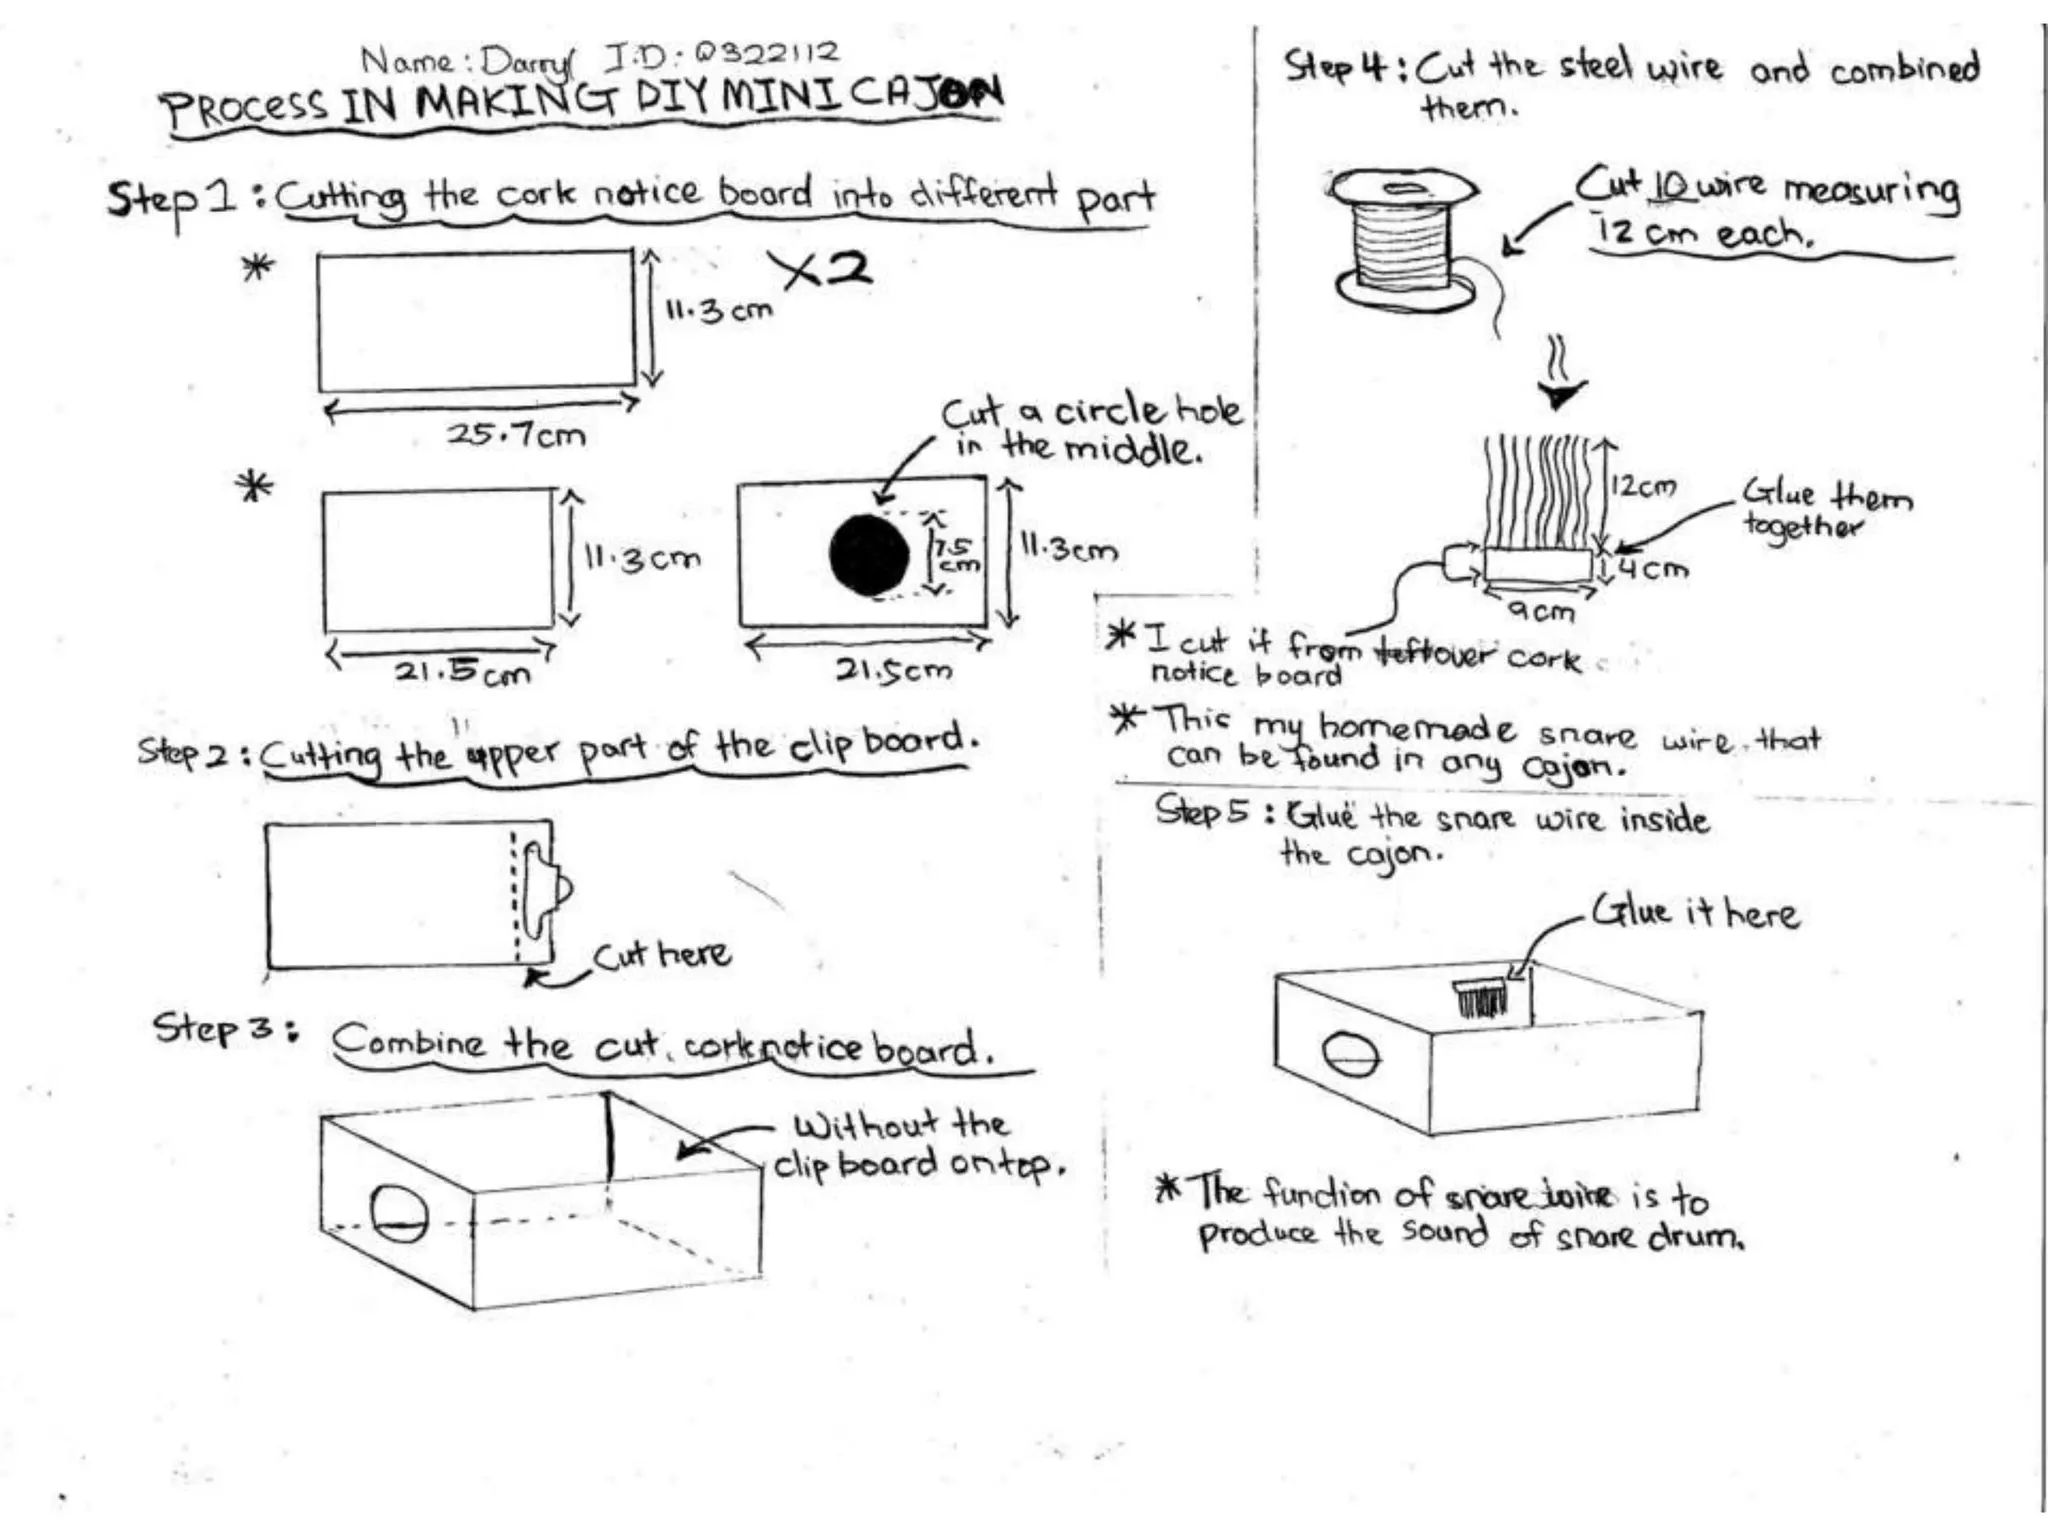 Name: Darryl I.D: 0322112
PROCESS IN MAKING DIY MINI CAJON
Step 1: Cutting the cork notice board into different part
*
X2
11.3 cm
25.7cm
Cut a circle hole
in the middle.
*
11.3 cm
21.5 cm
7.5
cm
11.3cm
21.5cm
Step 2: Cutting the upper part of the clip board.
Cut here
Step 3: Combine the cut, cork notice board.
Without the
clip board on top.
Step 4: Cut the steel wire and combined
them.
Cut 10 wire measuring
12 cm each.
12cm
Glue them
together
4cm
9cm
* I cut it from leftover cork
notice board
* This my homemade snare wire that
can be found in any cajon.
Step 5: Glue the snare wire inside
the cajon.
Glue it here
* The function of snare wire is to
produce the sound of snare drum.